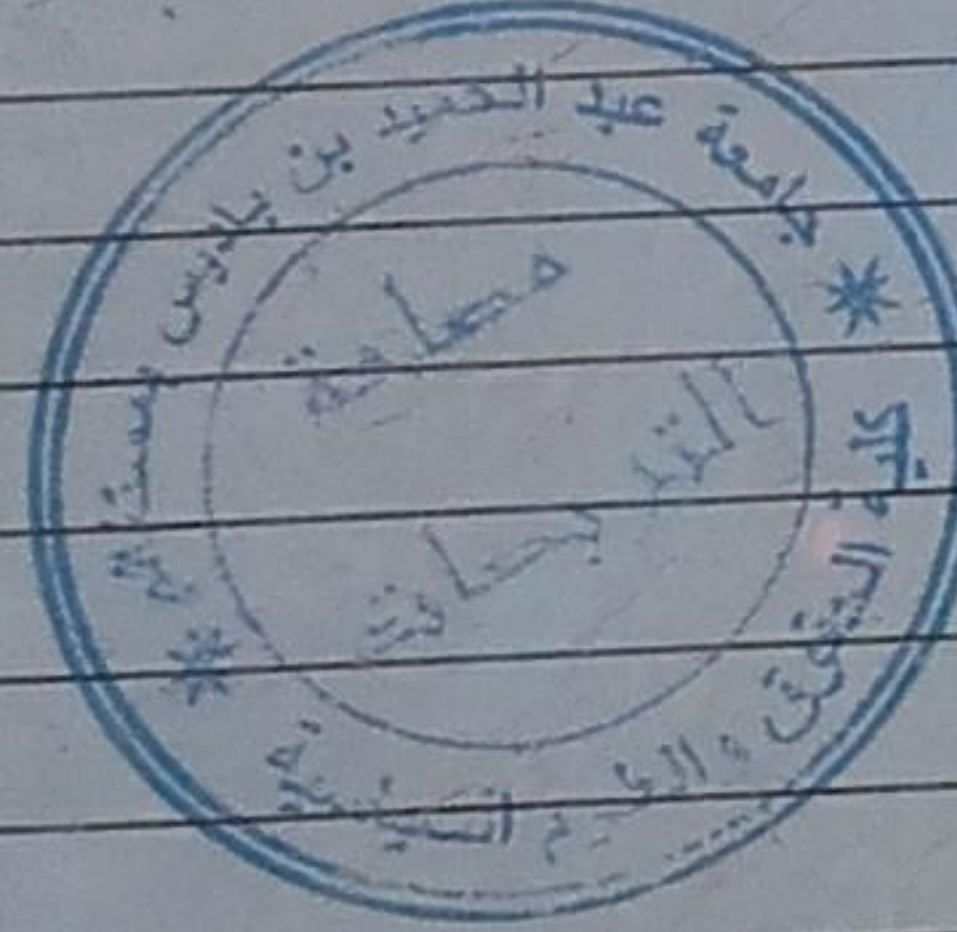 جامعة عبد الحميد بن باديس مستغانم
كلية الحقوق و العلوم السياسية
مصلحة
التدريسات